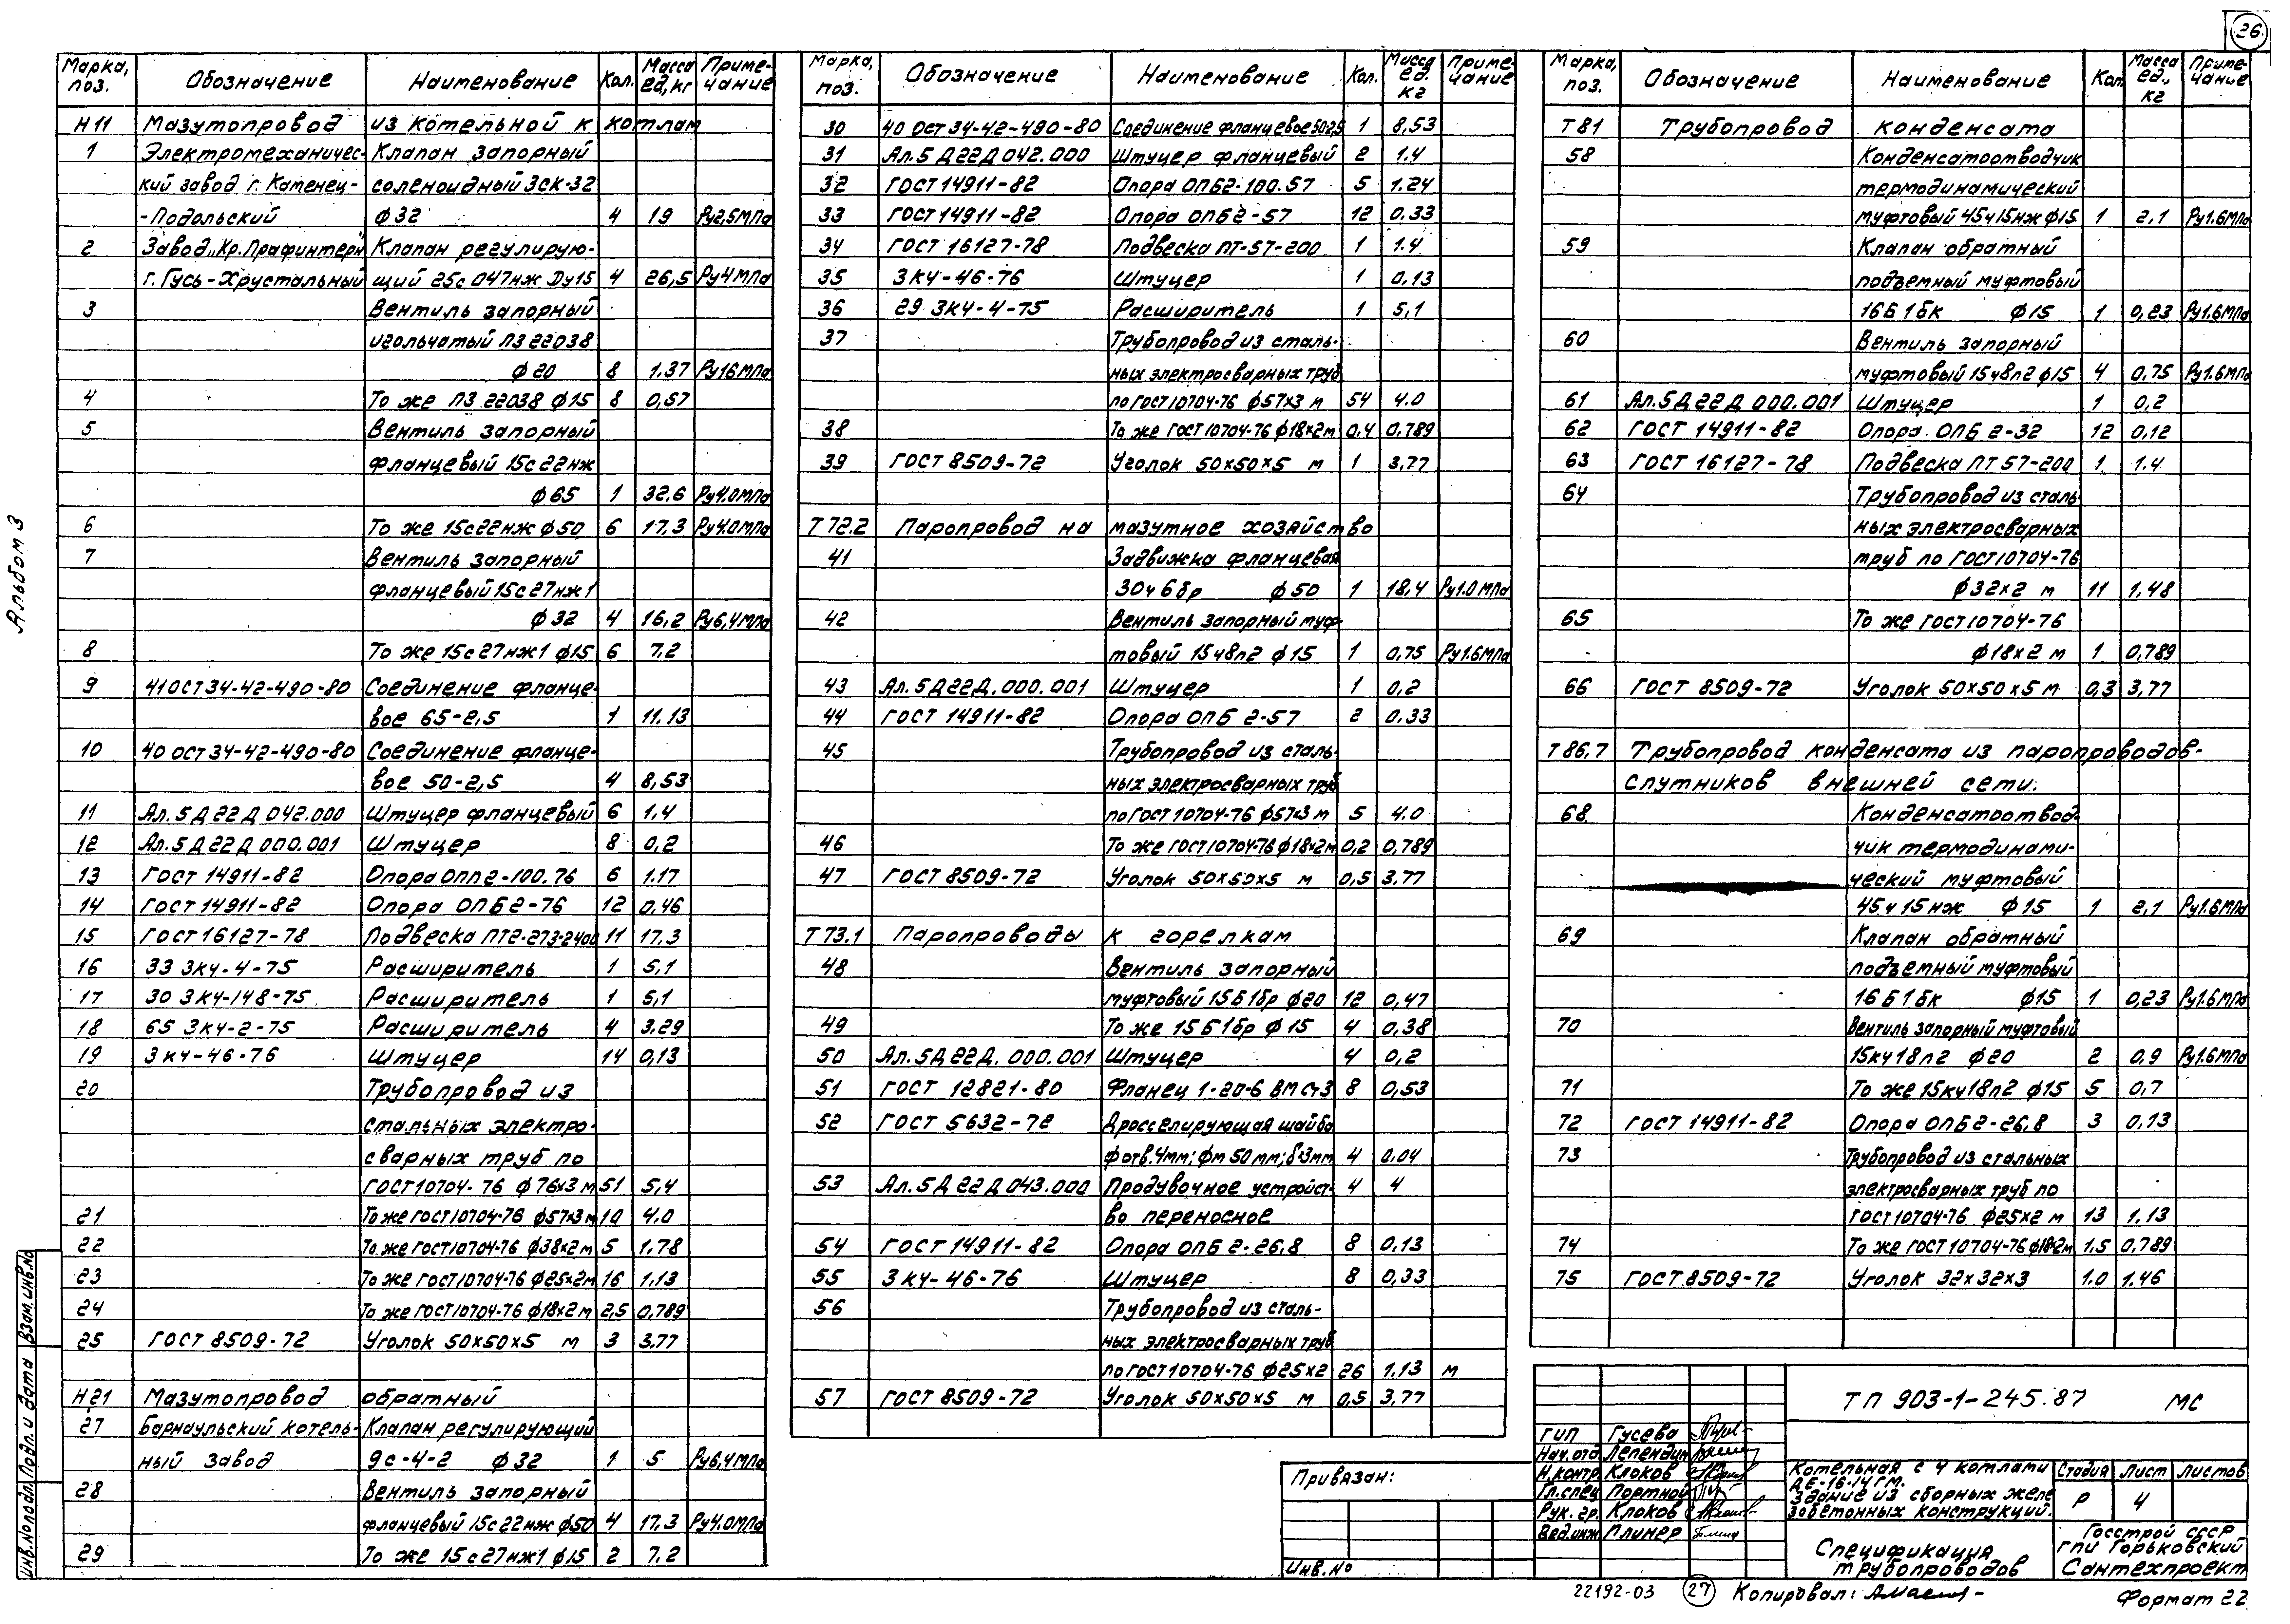 26
Альбом 3
Марка, поз. Обозначение Наименование Кол. Масса ед, кг Примечание
Н11 Мазутопровод из котельной к котлам
1 Электромеханичес- Клапан запорный
кий завод г. Каменец- соленоидный ЗСК-32
-Подольский ф32 4 19 Ру2,5МПа
2 Завод „Кр. Прафинтерн Клапан регулирую-
г. Гусь-Хрустальный щий 25с 047нж Ду15 4 26,5 Ру4МПа
3 Вентиль запорный
игольчатый ЛЗ 22038
ф20 8 1,37 Ру16МПа
4 То же ЛЗ 22038 ф15 8 0,57
5 Вентиль запорный
фланцевый 15с22нж
ф65 1 32,6 Ру4.0МПа
6 То же 15с22нж ф50 6 17,3 Ру4.0МПа
7 Вентиль запорный
фланцевый 15с27нж1
ф32 4 16,2 Ру6,4МПа
8 То же 15с27нж1 ф15 6 7,2
9 41 ОСТ 34-42-490-80 Соединение фланце-
вое 65-2,5 1 11.13
10 40 ОСТ 34-42-490-80 Соединение фланце-
вое 50-2,5 4 8,53
11 Ал.5 Д22Д 042.000 Штуцер фланцевый 6 1.4
12 Ал.5 Д22Д 000.001 Штуцер 8 0,2
13 ГОСТ 14911-82 Опора ОПП2-100.76 6 1.17
14 ГОСТ 14911-82 Опора ОПБ2-76 12 0,46
15 ГОСТ 16127-78 Подвеска ПТ2-273-2400 11 17.3
16 33 ЗК4-4-75 Расширитель 1 5,1
17 30 ЗК4-148-75 Расширитель 1 5,1
18 65 ЗК4-2-75 Расширитель 4 3.29
19 ЗК4-46-76 Штуцер 14 0,13
20 Трубопровод из
стальных электро-
сварных труб по
ГОСТ10704-76 ф76х3 м 51 5,4
21 То же ГОСТ10704-76 ф57х3 м 10 4.0
22 То же ГОСТ10704-76 ф38х2 м 5 1,78
23 То же ГОСТ10704-76 ф25х2 м 16 1.13
24 То же ГОСТ10704-76 ф18х2 м 2,5 0,789
25 ГОСТ 8509-72 Уголок 50х50х5 м 3 3,77
Н21 Мазутопровод обратный
27 Барнаульский котель- Клапан регулирующий
ный завод 9с-4-2 ф32 1 5 Ру6,4МПа
28 Вентиль запорный
фланцевый 15с22нж ф50 4 17,3 Ру4.0МПа
29 То же 15с27нж1 ф15 2 7,2
Марка, поз. Обозначение Наименование Кол. Масса ед. кг Примечание
30 40 ОСТ 34-42-490-80 Соединение фланцевое 50-2,5 1 8,53
31 Ал.5 Д22Д 042.000 Штуцер фланцевый 2 1.4
32 ГОСТ 14911-82 Опора ОПБ2-100.57 5 1.24
33 ГОСТ 14911-82 Опора ОПБ2-57 12 0.33
34 ГОСТ 16127-78 Подвеска ПТ-57-200 1 1.4
35 ЗК4-46-76 Штуцер 1 0,13
36 29 ЗК4-4-75 Расширитель 1 5,1
37 Трубопровод из сталь-
ных электросварных труб
по ГОСТ10704-76 ф57х3 м 54 4.0
38 То же ГОСТ10704-76 ф18х2 м 0,4 0,789
39 ГОСТ 8509-72 Уголок 50х50х5 м 1 3,77
Т72.2 Паропровод на мазутное хозяйство
41 Задвижка фланцевая
30ч6бр ф50 1 18,4 Ру1.0МПа
42 Вентиль запорный муф-
товый 15ч8п2 ф15 1 0,75 Ру1.6МПа
43 Ал.5Д22Д.000.001 Штуцер 1 0,2
44 ГОСТ 14911-82 Опора ОПБ 2-57 2 0.33
45 Трубопровод из сталь-
ных электросварных труб
по ГОСТ10704-76 ф57х3 м 5 4.0
46 То же ГОСТ10704-76 ф18х2 м 0,2 0,789
47 ГОСТ 8509-72 Уголок 50х50х5 м 0,5 3,77
Т73.1 Паропроводы к горелкам
48 Вентиль запорный
муфтовый 15Б1бр ф20 12 0,47
49 То же 15Б1бр ф15 4 0,38
50 Ал.5Д22Д.000.001 Штуцер 4 0,2
51 ГОСТ 12821-80 Фланец 1-20-6 ВМСт3 8 0,53
52 ГОСТ 5632-72 Дросселирующая шайба
ф отв.4мм; фм50мм; δ=3мм 4 0.04
53 Ал.5Д22Д 043.000 Продувочное устройст- 4 4
во переносное
54 ГОСТ 14911-82 Опора ОПБ 2-26,8 8 0,13
55 ЗК4-46-76 Штуцер 8 0,33
56 Трубопровод из сталь-
ных электросварных труб
по ГОСТ10704-76 ф25х2 26 1.13 м
57 ГОСТ 8509-72 Уголок 50х50х5 м 0,5 3,77
Марка, поз. Обозначение Наименование Кол. Масса ед., кг Примечание
Т81 Трубопровод конденсата
58 Конденсатоотводчик
термодинамический
муфтовый 45ч15нж ф15 1 2,1 Ру1.6МПа
59 Клапан обратный
подъемный муфтовый
16Б1бк ф15 1 0,23 Ру1.6МПа
60 Вентиль запорный
муфтовый 15ч8п2 ф15 4 0,75 Ру1.6МПа
61 Ал.5Д22Д 000.001 Штуцер 1 0,2
62 ГОСТ 14911-82 Опора ОПБ 2-32 12 0,12
63 ГОСТ 16127-78 Подвеска ПТ 57-200 1 1.4
64 Трубопровод из сталь
ных электросварных
труб по ГОСТ10704-76
ф32х2 м 11 1,48
65 То же ГОСТ10704-76
ф18х2 м 1 0,789
66 ГОСТ 8509-72 Уголок 50х50х5 м 0,3 3,77
Т86,7 Трубопровод конденсата из паропроводов-
спутников внешней сети.
68 Конденсатоотвод-
чик термодинами-
ческий муфтовый
45ч15нж ф15 1 2,1 Ру1.6МПа
69 Клапан обратный
подъемный муфтовый
16Б1бк ф15 1 0,23 Ру1.6МПа
70 Вентиль запорный муфтовый
15кч18п2 ф20 2 0,9 Ру1.6МПа
71 То же 15кч18п2 ф15 5 0,7
72 ГОСТ 14911-82 Опора ОПБ2-26,8 3 0,13
73 Трубопровод из стальных
электросварных труб по
ГОСТ10704-76 ф25х2 м 13 1.13
74 То же ГОСТ10704-76 ф18х2м 1.5 0,789
75 ГОСТ.8509-72 Уголок 32х32х3 1.0 1.46
Инв.№ подл. Подп. и дата Взам.инв.№
Привязан:
Инв.№
ТП 903-1-245.87 МС
ГИП Гусева
Нач.отд. Лепендин
Н.контр. Клоков
Гл.спец Портной
Рук.гр. Клоков
Вед.инж. Плинер
Котельная с 4 котлами
ДЕ-16-14ГМ.
Здание из сборных желе
зобетонных конструкций.
Стадия Лист Листов
Р 4
Спецификация
трубопроводов
Госстрой СССР
ГПИ Горьковский
Сантехпроект
22192-03 27 Копировал:
Формат 22